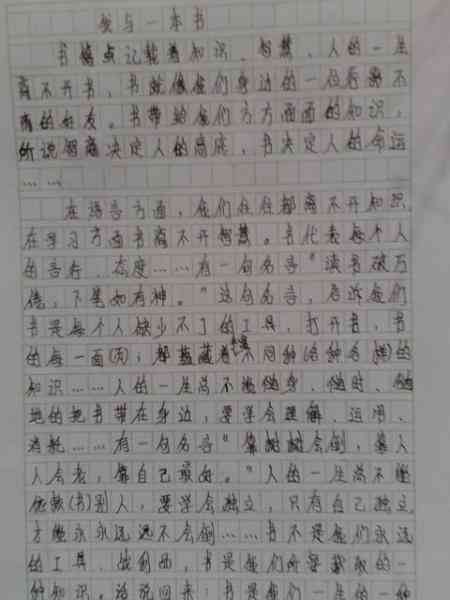 我与一本书
书籍点记载着知识、智慧、人的一生
离不开书,书就像我们身边的一位形影不
离的好友。书带给我们方方面面的知识,
所说智商决定人的高度,书决定人的命运
……
在语言方面,我们往往都离不开知识
在学习方面书离不开智慧。书代表每个人
的言行、态度……有一句名言“读书破万
倦,下笔如有神。”这句名言,告诉我们
书是每个人缺少不了的工具,打开书,书
的每一面(页);都蕴藏着不同种(各种各样)的
知识……人的一生尚不能随身、随时、随
地的把书带在身边,要学会理解、运用、
消耗……有一句名言“靠树树会倒,靠人
人会老,靠自己最好。”人的一生尚不能
依赖(书)别人,要学会独立,只有自己独立
才能永永远远不会倒……书不是我们永远
的工具、战利品,书是我们所要获取的一
种知识。话说回来:书是我们一生的一种